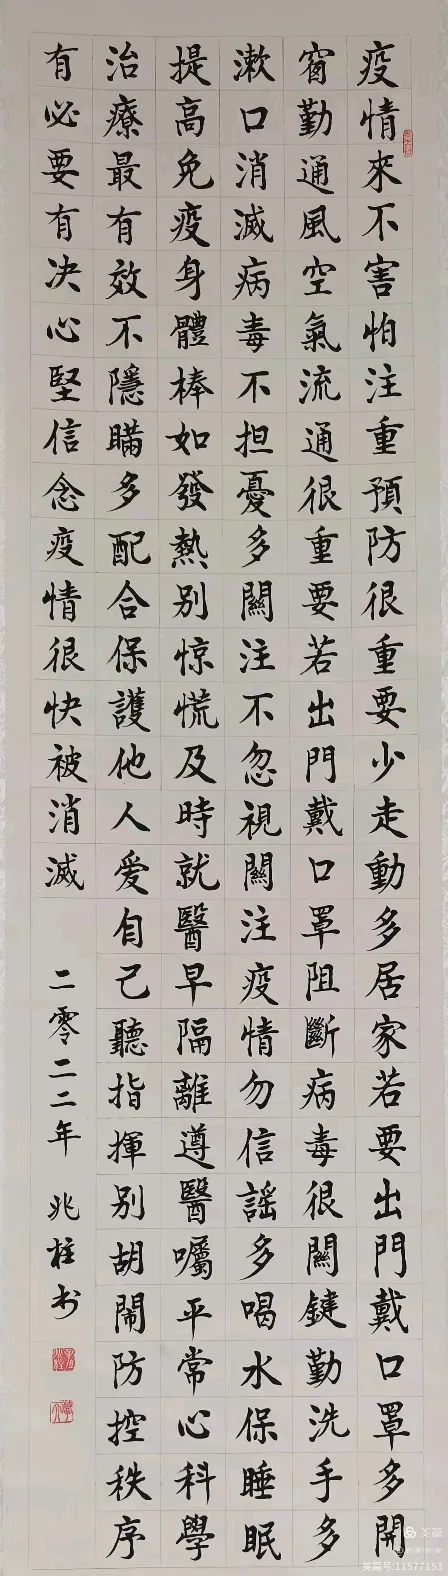 疫情來不害怕注重預防很重要少走動多居家若要出門戴口罩多開
窗勤通風空氣流通很重要若出門戴口罩阻斷病毒很關鍵勤洗手多
漱口消滅病毒不担憂多關注不忽視關注疫情勿信謠多喝水保睡眠
提高免疫身體棒如發熱别惊慌及時就醫早隔離遵醫囑平常心科學
治療最有效不隱瞞多配合保護他人愛自己聽指揮别胡鬧防控秩序
有必要有决心堅信念疫情很快被消滅
二零二二年 兆柱书
美篇
美篇号:11577153